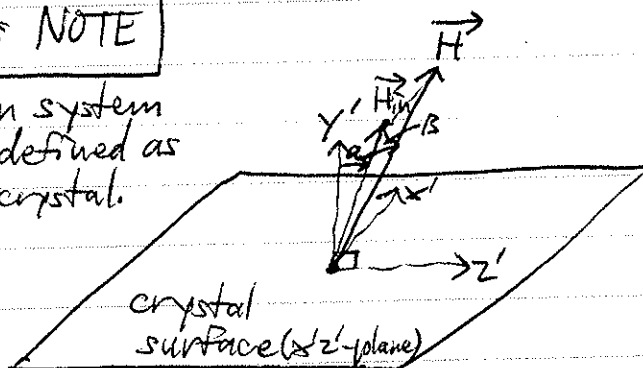 NOTE
n system
defined as
crystal.
H
Y'
H in
a
B
x'
z'
crystal
surface (x'z'-plane)